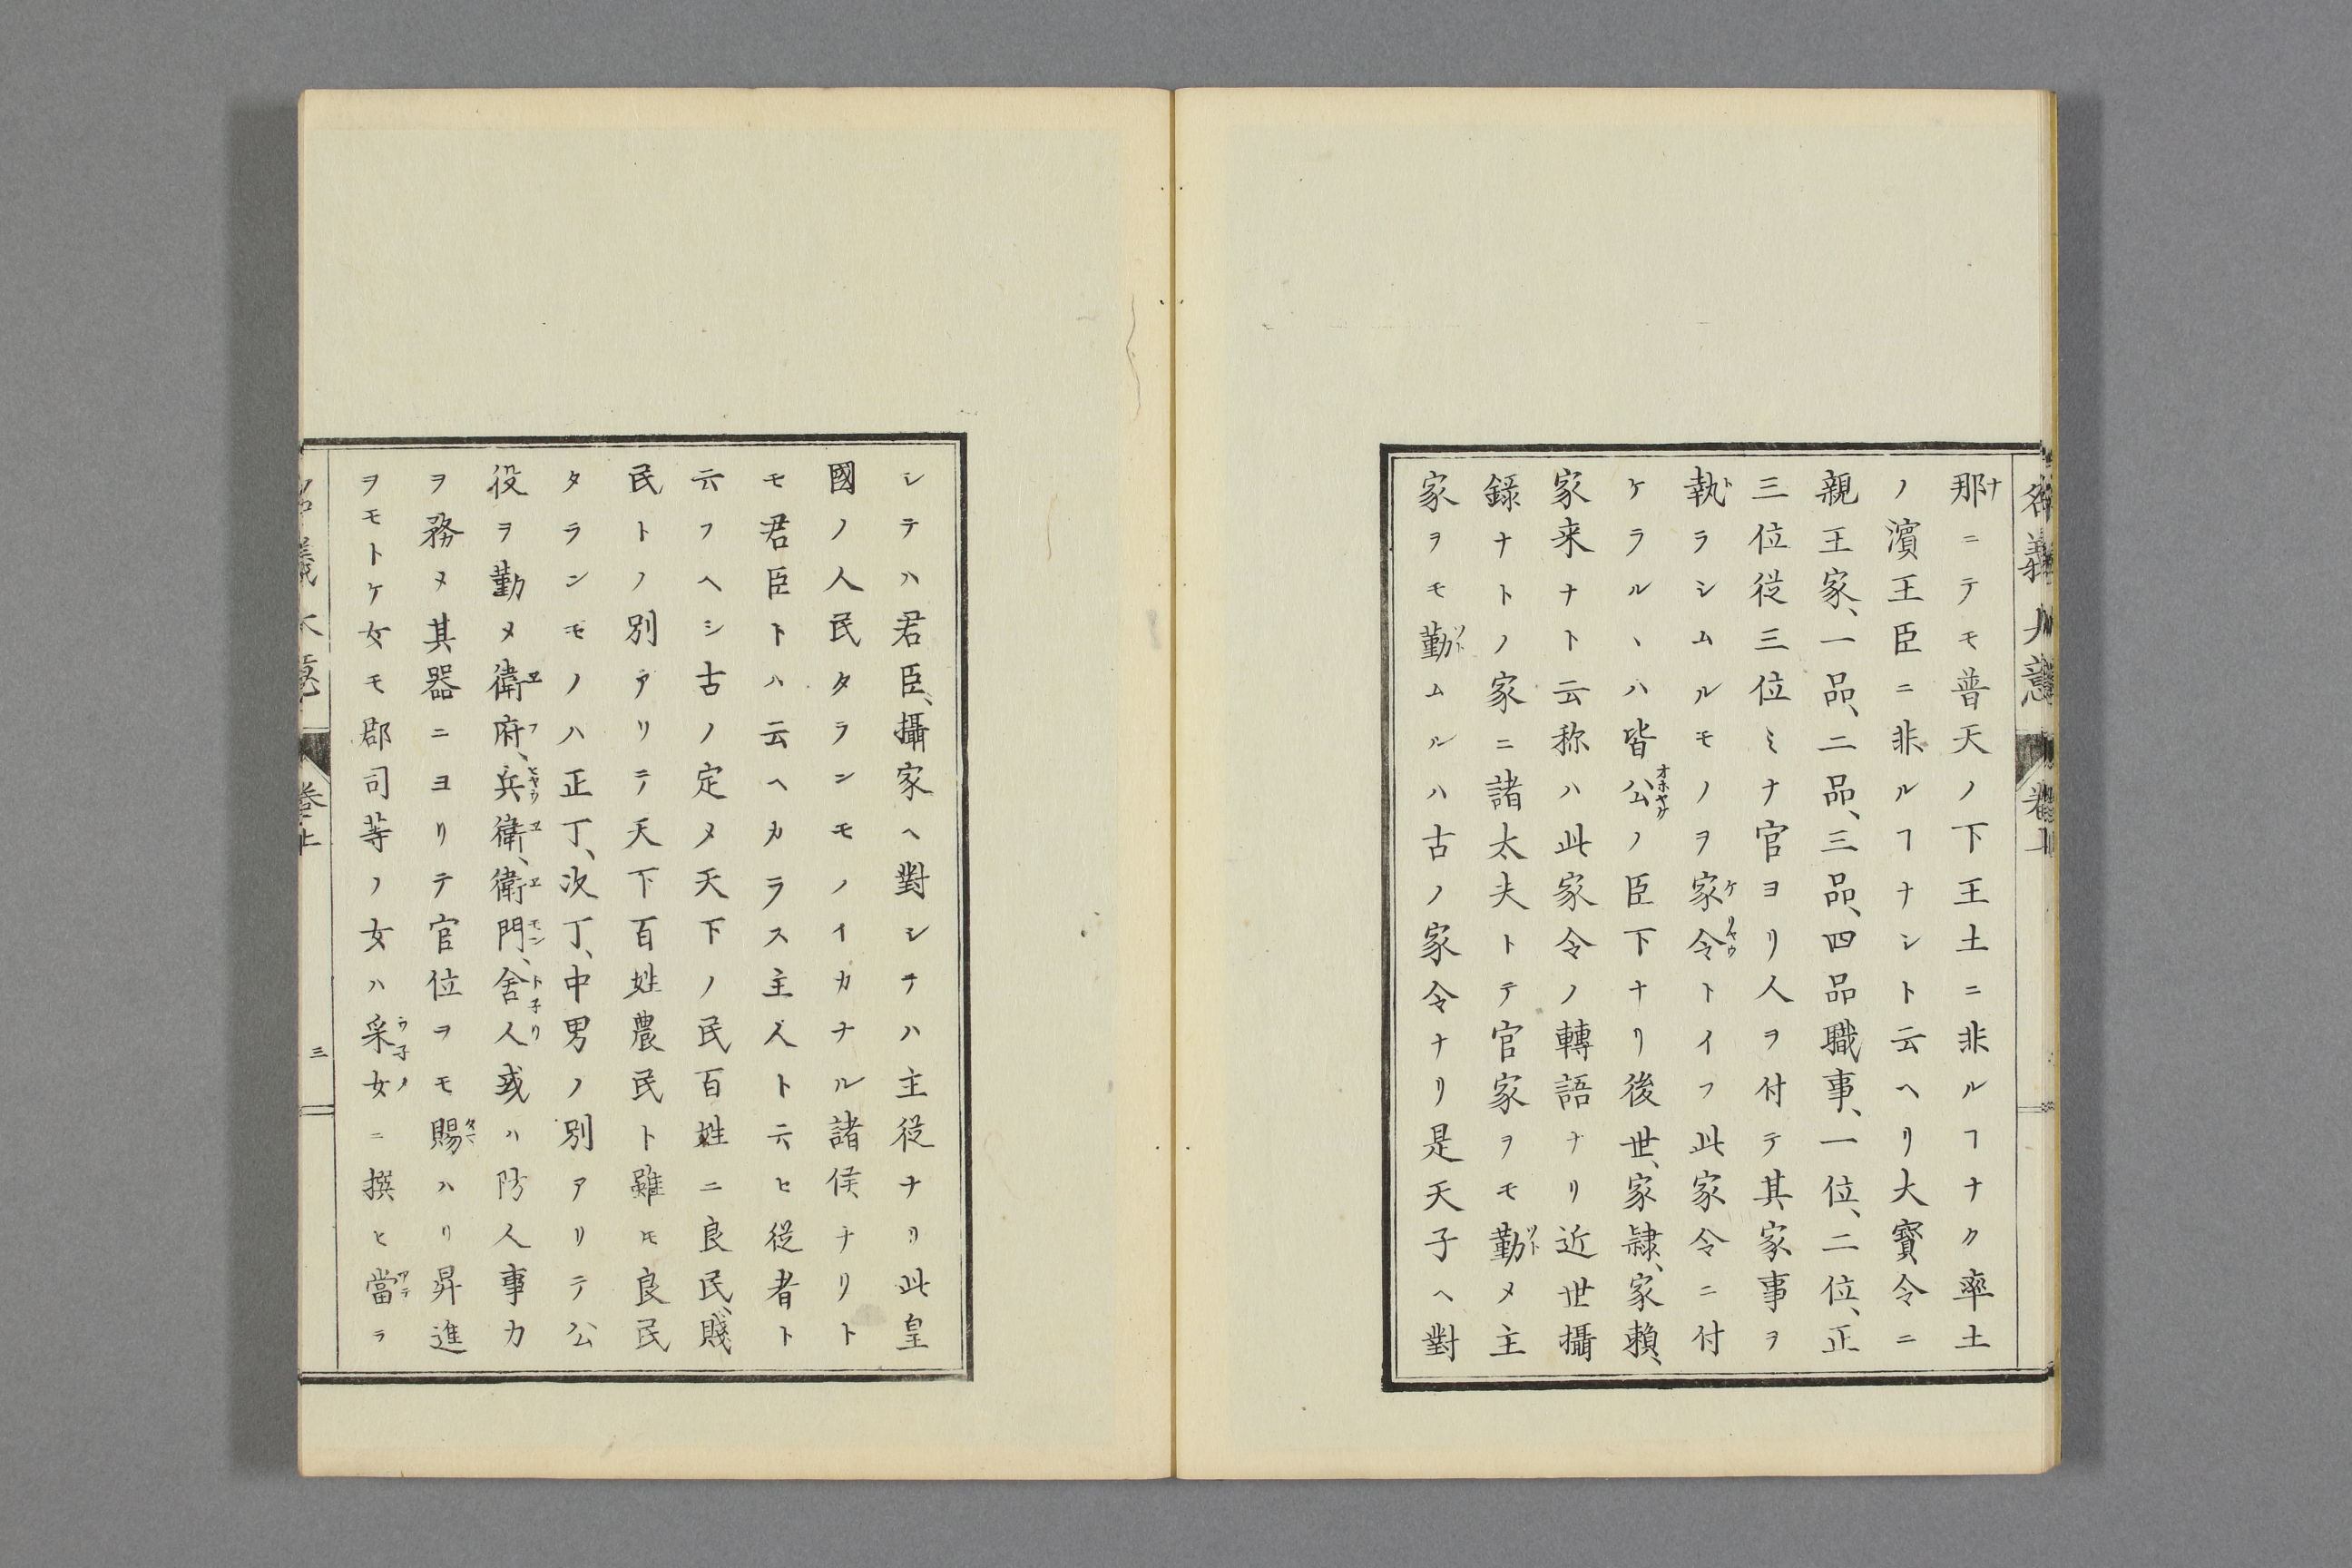 那ニテモ普天ノ下王土ニ非ルヿナク率土
ノ濱王臣ニ非ルヿナシト云ヘリ大寶令ニ
親王家、一品、二品、三品、四品職事、一位、二位、正
三位従三位ミナ官ヨリ人ヲ付テ其家事ヲ
執ラシムルモノヲ家令トイフ此家令ニ付
ケラルヽハ皆公ノ臣下ナリ後世、家隷、家頼、
家来ナト云称ハ此家令ノ轉語ナリ近世攝
錄ナトノ家ニ諸太夫トテ官家ヲモ勤メ主
家ヲモ勤ムルハ古ノ家令ナリ是天子ヘ對
シテハ君臣、攝家ヘ對シテハ主従ナリ此皇
國ノ人民タランモノイカナル諸侯ナリト
モ君臣トハ云ヘカラス主人ト云ヒ従者ト
云フヘシ古ノ定メ天下ノ民百姓ニ良民、賤
民トノ別アリテ天下百姓農民ト雖モ良民
タランモノハ正丁、次丁、中男ノ別アリテ公
役ヲ勤メ衛府、兵衛、衛門、舎人或ハ防人事力
ヲ務メ其器ニヨリテ官位ヲモ賜ハリ昇進
ヲモトケ女モ郡司等ノ女ハ采女ニ撰ヒ當ラ
名義大意 巻上 三